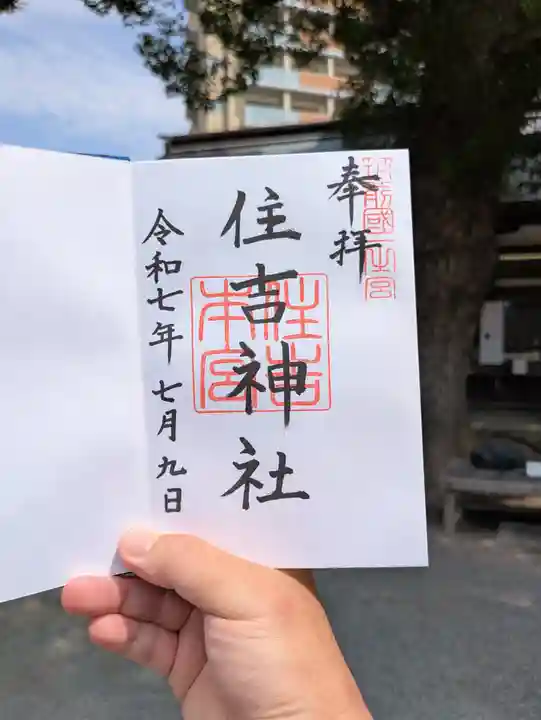 奉拝
筑前國一之宮
住吉神社
住吉本宮
令和七年七月九日